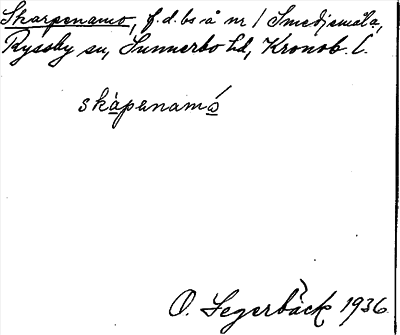 Skarpenamo, f.d. bs. å nr 1 Smedjemåla,
Ryssby sn, Sunnerbo hd, Kronob. l.
skapenamó
O. Segerbäck 1936.